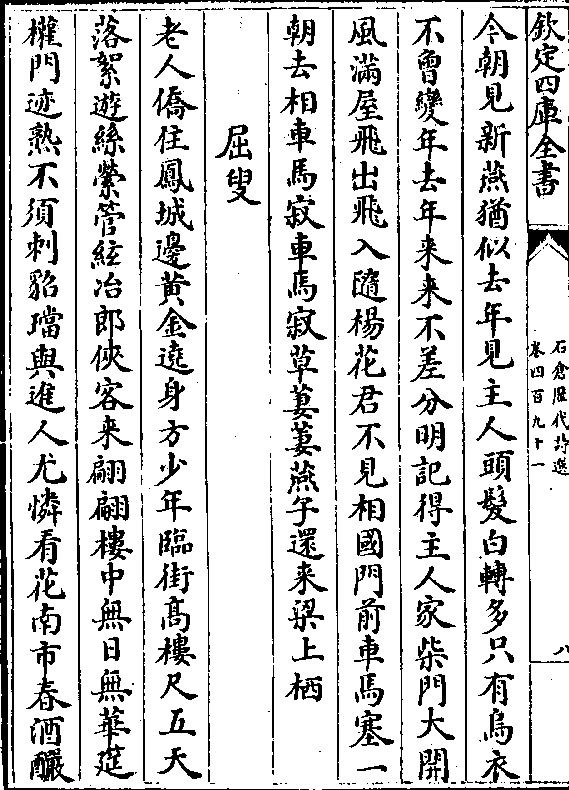 欽定四庫全書
石倉歷代詩選
卷四百九十一
八
今朝見新燕猶似去年見主人頭髮白轉多只有烏衣
不曾變年去年来来不差分明記得主人家柴門大開
風滿屋飛出飛入隨楊花君不見相國門前車馬塞一
朝去相車馬寂車馬寂草萋萋燕子還来梁上栖
屈叟
老人僑住鳳城邊黃金遶身方少年臨街髙樓尺五天
落絮遊絲縈管絃冶郎俠客来翩翩樓中無日無華筵
權門迹熟不須刺貂璫與進人尤憐看花南市春酒釅